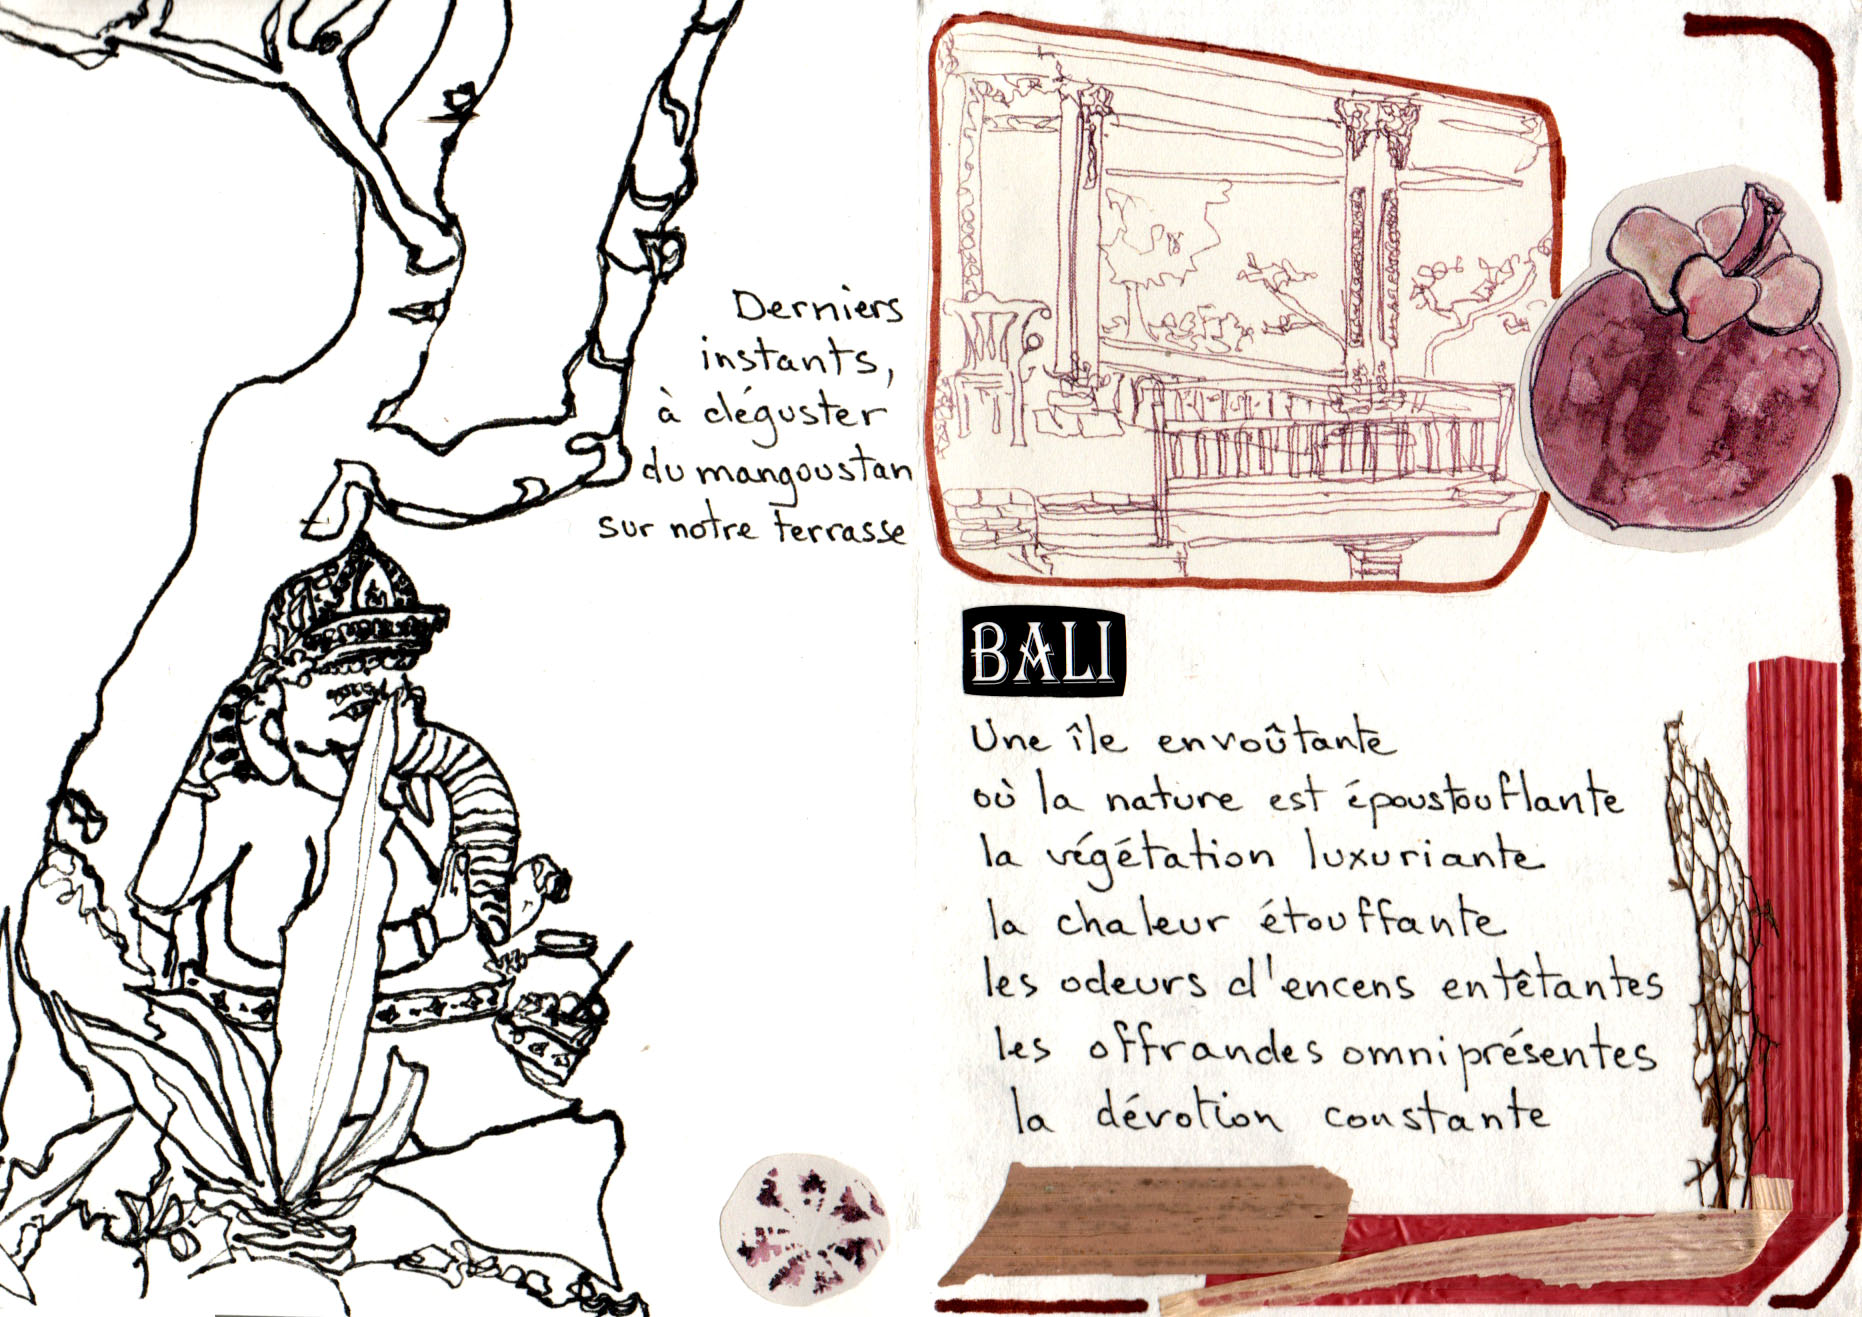 Derniers
instants,
à déguster
du mangoustan
sur notre terrasse
BALI
Une île envoûtante
où la nature est époustouflante
la végétation luxuriante
la chaleur étouffante
les odeurs d'encens entêtantes
les offrandes omniprésentes
la dévotion constante